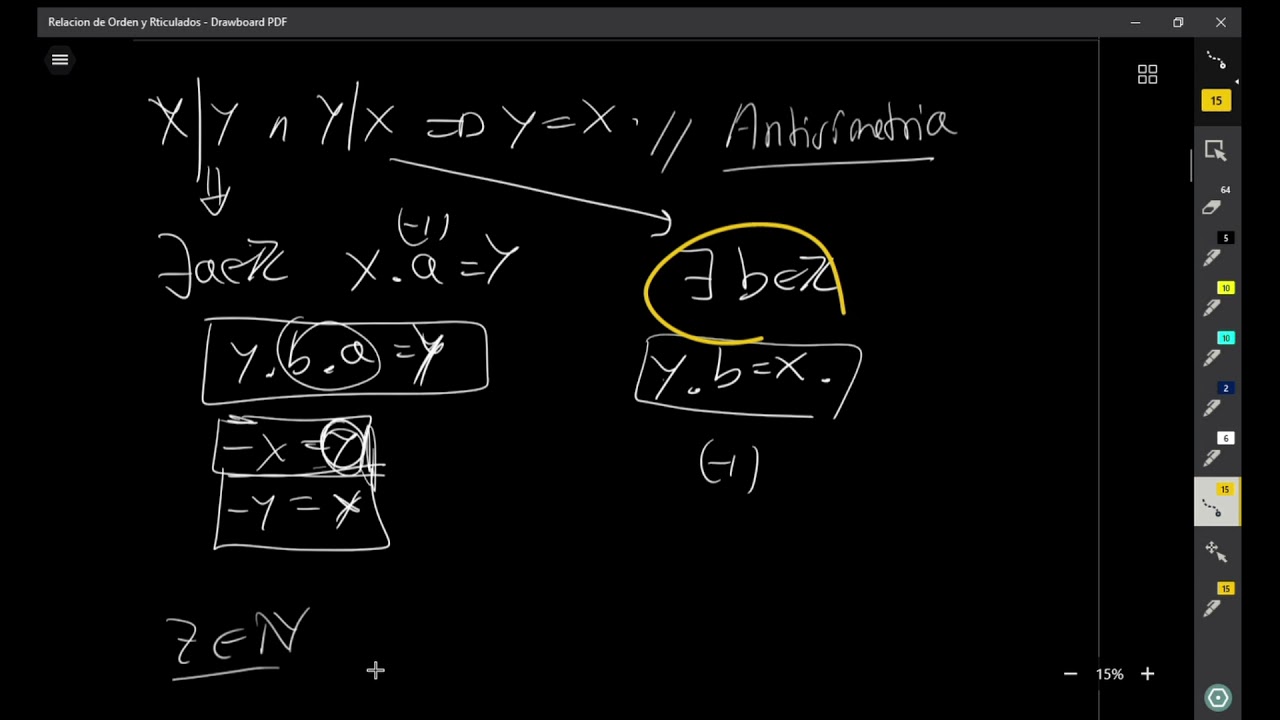 Relacion de Orden y Rticulados - Drawboard PDF
X|Y ∧ Y|X ⇒ Y=X. // Antisimetria
(-1)
∃a∈ℤ X.a=Y
∃ b∈ℤ
Y.b.a=Y
Y.b=X.
-X=Y
(-1)
-Y=X
Z∈ℕ
15%
15
64
5
10
10
2
6
15
15